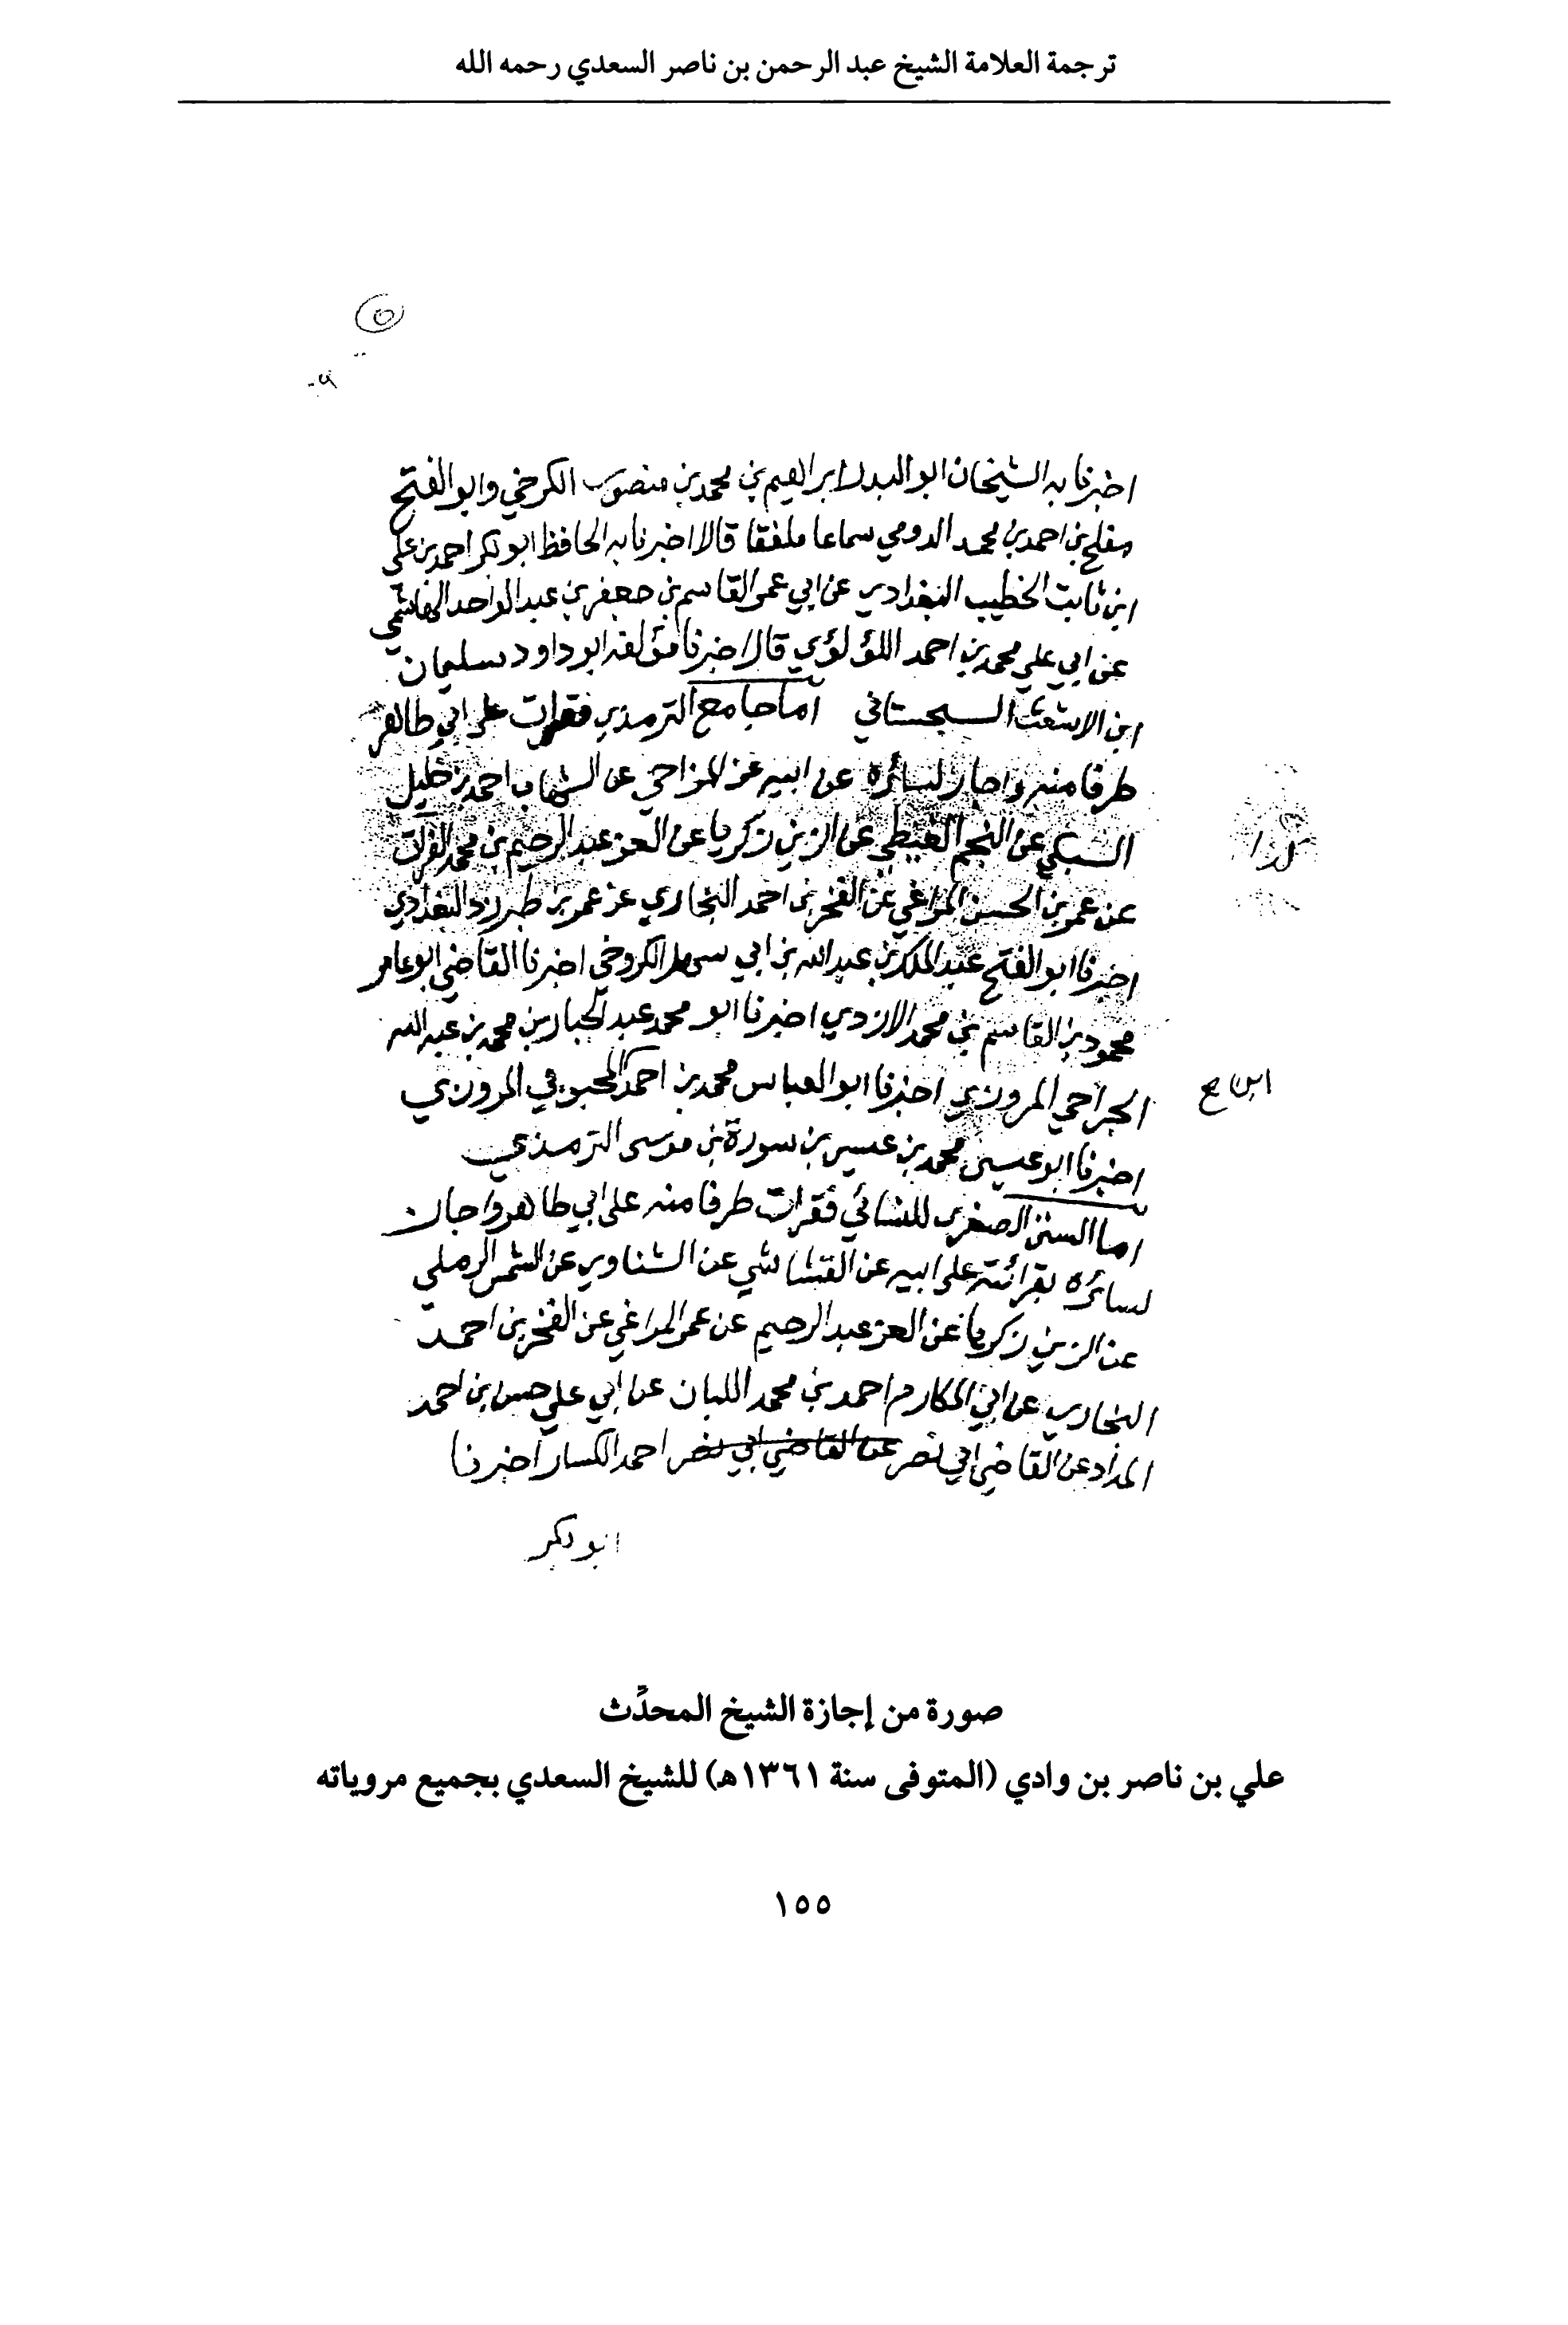 ترجمة العلامة الشيخ عبد الرحمن بن ناصر السعدي رحمه الله
اخبرنا به الشيخان ابو البدر ابراهيم بن محمد بن منصور الكرخي وابو الفتح
مفلح بن احمد بن محمد الدومي سماعا ملفقا قالا اخبرنا به الحافظ ابو بكر احمد بن علي
ابن ثابت الخطيب البغدادي عن ابي عمر القاسم بن جعفر بن عبد الواحد الهاشمي
عن ابي علي محمد بن احمد اللؤلؤي قال اخبرنا مؤلفه ابو داود سليمان
ابن الاشعث السجستاني اما جامع الترمذي فقرات على ابي طاهر
طرفا منه واجاز لسائره عن ابيه عن المزاحي عن الشهاب احمد بن خليل
السبكي عن النجم الغيطي عن الزين زكريا عن العز عبد الرحيم بن محمد الفرات
عن عمر بن الحسن المراغي عن الفخر بن احمد البخاري عن عمر بن طبرزد البغدادي
اخبرنا ابو الفتح عبد الملك بن عبد الله بن ابي سهل الكروخي اخبرنا القاضي ابو عامر
محمود بن القاسم بن محمد الازدي اخبرنا ابو محمد عبد الجبار بن محمد بن عبد الله
ابن ح
الجراحي المروزي اخبرنا ابو العباس محمد بن احمد المحبوبي المروزي
اخبرنا ابو عيسى محمد بن عيسى بن سورة بن موسى الترمذي
اما السنن الصغرى للنسائي فقرات طرفا منه على ابي طاهر واجاز
لسائره بقرائته على ابيه عن القشاشي عن الشناوي عن الشمس الرملي
عن الزين زكريا عن العز عبد الرحيم عن عمر المراغي عن الفخر بن احمد
البخاري عن ابي المكارم احمد بن محمد اللبان عن ابي علي حسن بن احمد
الحداد عن القاضي ابي نصر عن القاضي ابي نصر احمد الكسار اخبرنا
ابو بكر
صورة من إجازة الشيخ المحدِّث
علي بن ناصر بن وادي (المتوفى سنة ١٣٦١هـ) للشيخ السعدي بجميع مروياته
١٥٥